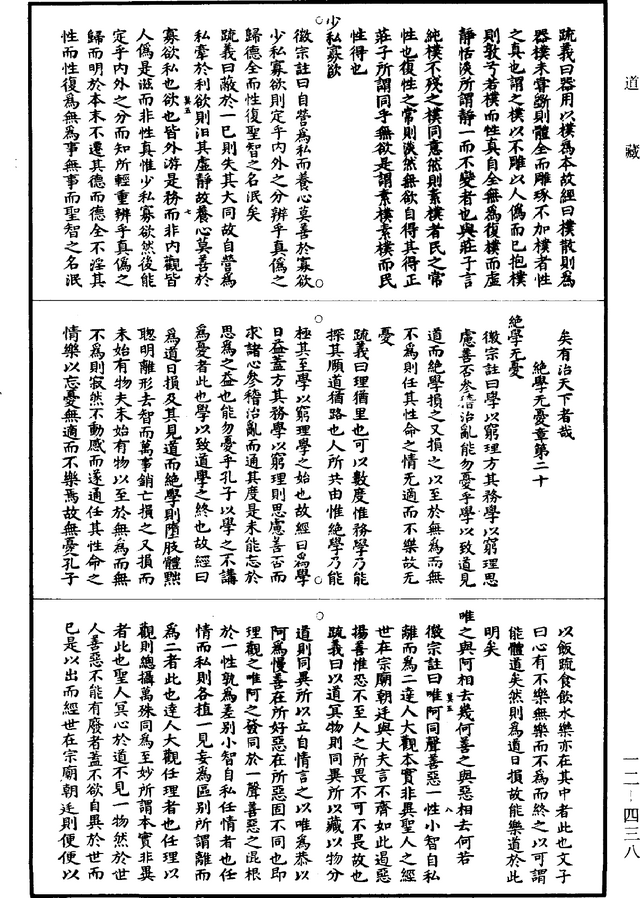 道藏
疏義曰器用以樸為本故經曰樸散則為
器樸未嘗斲則體全而雕琢不加樸者性
之真也謂之樸以不雕以人偽而已抱樸
則敦兮若樸而性真自全無為復樸而虛
靜恬淡所謂靜一而不變者也與莊子言
純樸不殘之樸同意然則素樸者民之常
性也復性之常則淡然無欲自得其得正
莊子所謂同乎無欲是謂素樸素樸而民
性得也
少私寡欲
徽宗註曰自營為私而養心莫善於寡欲
少私寡欲則定乎內外之分辨乎真偽之
歸德全而性復聖智之名泯矣
疏義曰蔽於一己則失其大同故自營為
私牽於利欲則汨其虛靜故養心莫善於
莫五 七
寡欲私也欲也皆外游是務而非內觀皆
人偽是滋而非性真惟少私寡欲然後能
定乎內外之分而知所輕重辨乎真偽之
歸而明於本末不遷其德而德全不淫其
性而性復為無為事無事而聖智之名泯
矣有治天下者哉
絕學無憂章第二十
絕學无憂
徽宗註曰學以窮理方其務學以窮理思
慮善否參稽治亂能勿憂乎學以致道見
道而絕學損之又損之以至於無為而無
不為則任其性命之情无適而不樂故无
憂
疏義曰理猶里也可以數度惟務學乃能
探其順道猶路也人所共由惟絕學乃能
極其至學以窮理學之始也故經曰為學
日益蓋方其務學以窮理則思慮善否而
求諸心參稽治亂而通其度是未能忘於
思為之益也能勿憂乎孔子以學之不講
為憂者此也學以致道學之終也故經曰
為道日損及其見道而絕學則墮肢體黜
聰明離形去智而萬事銷亡損之又損而
未始有物夫未始有物以至於無為而無
不為則寂然不動感而遂通任其性命之
情樂以忘憂無適而不樂焉故無憂孔子
以飯疏食飲水樂亦在其中者此也文子
曰心有不樂無樂而不為而終之以可謂
能體道矣然則為道日損故能樂道於此
明矣
唯之與阿相去幾何善之與惡相去何若
莫五 八
徽宗註曰唯阿同聲善惡一性小智自私
離而為二達人大觀本實非異聖人之經
世在宗廟朝廷與大夫言不齊如此遏惡
揚善惟恐不至人之所畏不可不畏故也
疏義曰以道冥物則同異所以藏以物分
道則同異所以立自情言之以唯為恭以
阿為慢善在所好惡在所惡固不同也即
理觀之唯阿之發同於一聲善惡之混根
於一性孰為差別小智自私任情者也任
情而私則各植一見妄為區別所謂離而
為二者此也達人大觀任理者也任理以
觀則總攝萬殊同為至妙所謂本實非異
者此也聖人冥心於道不見一物然於世
人善惡不能有廢者蓋不欲自異於世而
已是以出而經世在宗廟朝廷則便便以
一二—四三八